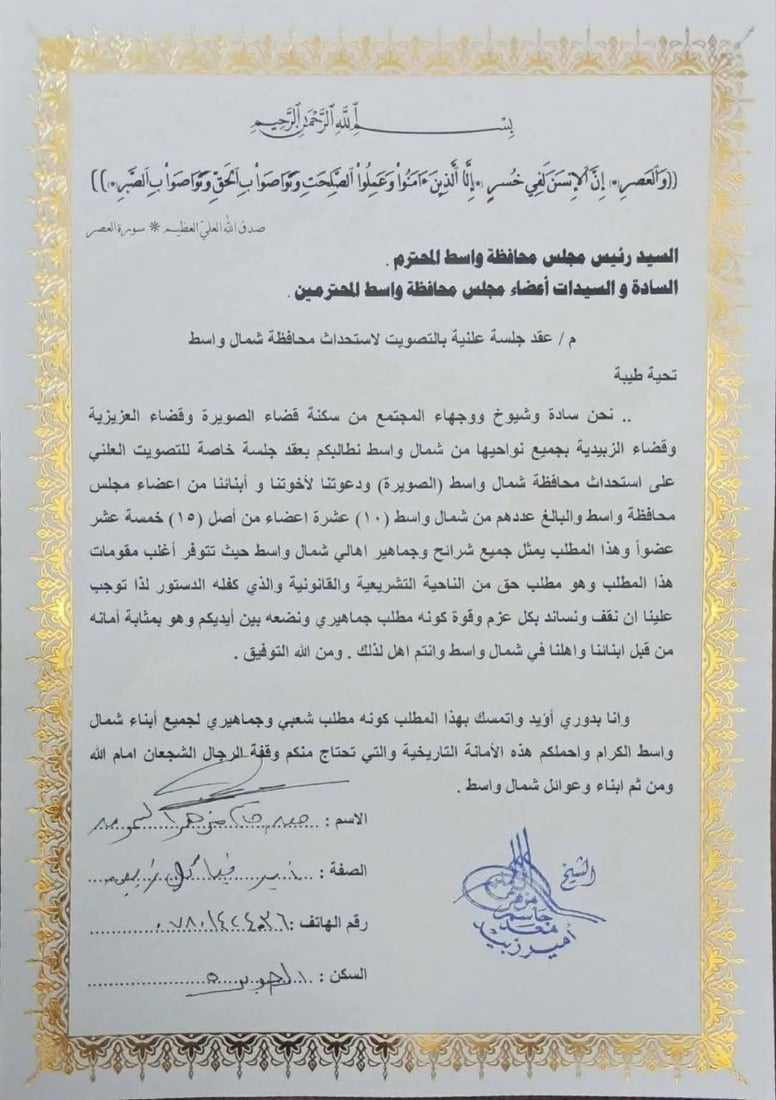 بِسْمِ ٱللَّهِ ٱلرَّحْمَٰنِ ٱلرَّحِيمِ
((وَٱلۡعَصۡرِ * إِنَّ ٱلۡإِنسَٰنَ لَفِي خُسۡرٍ * إِلَّا ٱلَّذِينَ ءَامَنُواْ وَعَمِلُواْ ٱلصَّٰلِحَٰتِ وَتَوَاصَوۡاْ بِٱلۡحَقِّ وَتَوَاصَوۡاْ بِٱلصَّبۡرِ *))
صدق الله العلي العظيم * سورة العصر
السيد رئيس مجلس محافظة واسط المحترم .
السادة و السيدات أعضاء مجلس محافظة واسط المحترمين .
م / عقد جلسة علنية بالتصويت لاستحداث محافظة شمال واسط
تحية طيبة
.. نحن سادة وشيوخ ووجهاء المجتمع من سكنة قضاء الصويرة وقضاء العزيزية
وقضاء الزبيدية بجميع نواحيها من شمال واسط نطالبكم بعقد جلسة خاصة للتصويت العلني
على استحداث محافظة شمال واسط (الصويرة) ودعوتنا لأخوتنا و أبنائنا من اعضاء مجلس
محافظة واسط والبالغ عددهم من شمال واسط (١٠) عشرة اعضاء من أصل (١٥) خمسة عشر
عضواً وهذا المطلب يمثل جميع شرائح وجماهير اهالي شمال واسط حيث تتوفر أغلب مقومات
هذا المطلب وهو مطلب حق من الناحية التشريعية والقانونية والذي كفله الدستور لذا توجب
علينا ان نقف ونساند بكل عزم وقوة كونه مطلب جماهيري ونضعه بين أيديكم وهو بمثابة أمانه
من قبل ابنائنا واهلنا في شمال واسط وانتم اهل لذلك . ومن الله التوفيق .
وانا بدوري أؤيد واتمسك بهذا المطلب كونه مطلب شعبي وجماهيري لجميع أبناء شمال
واسط الكرام واحملكم هذه الأمانة التاريخية والتي تحتاج منكم وقفة الرجال الشجعان امام الله
ومن ثم ابناء وعوائل شمال واسط .
الاسم :
الصفة : امير قبائل زبيد
رقم الهاتف :
السكن : الصويرة
الشيخ
مزهر
جاسم
أمير زبيد